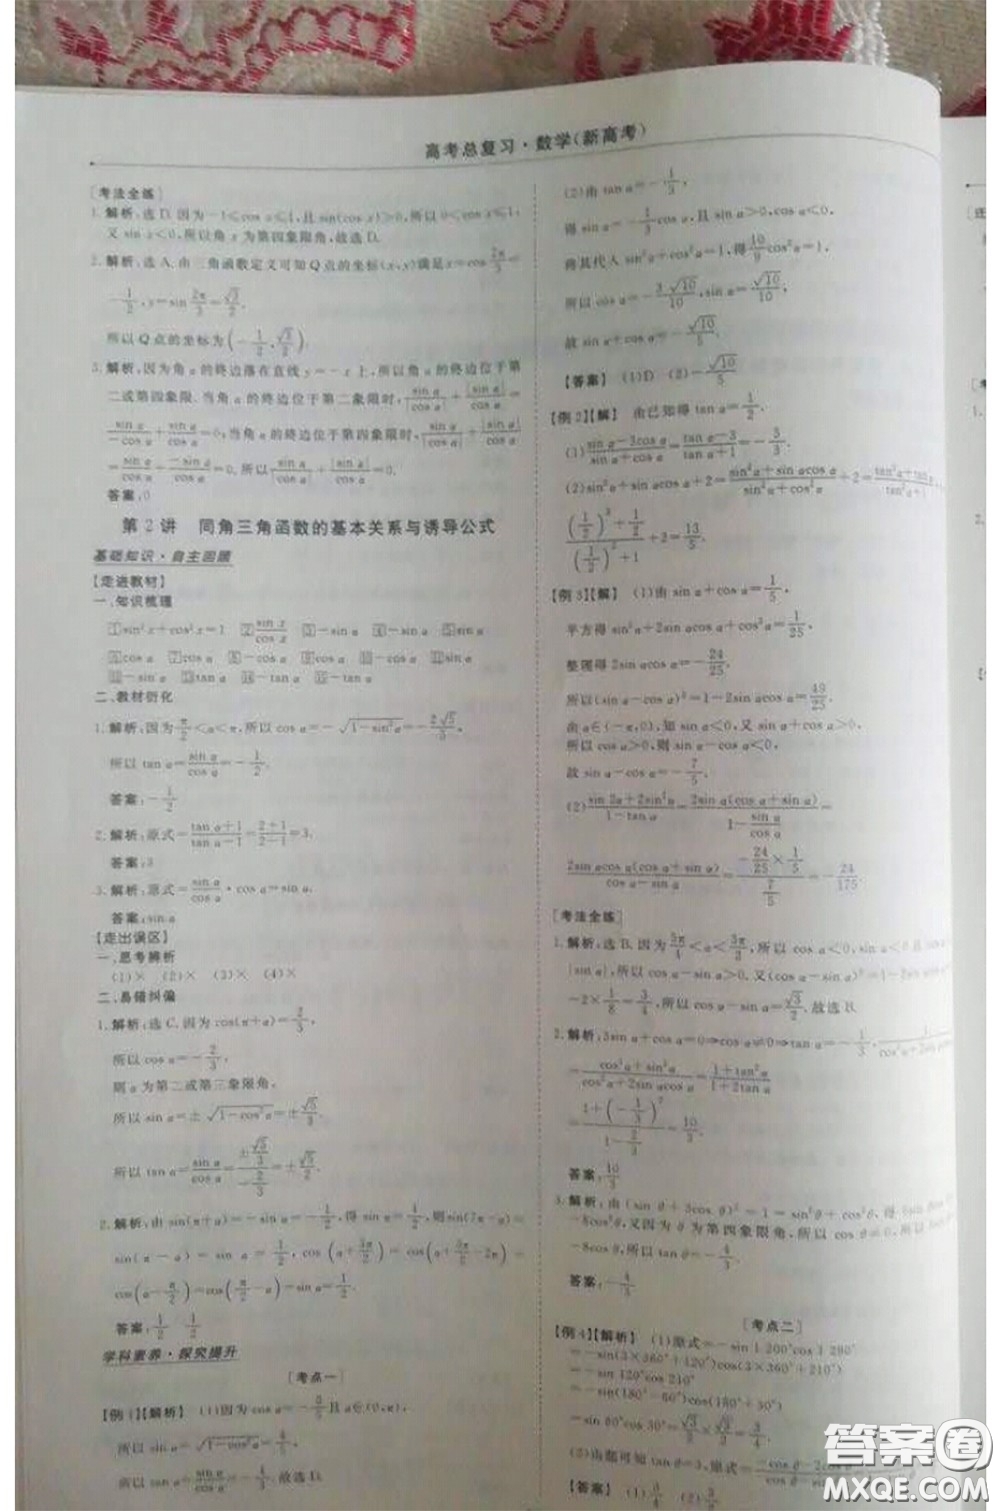 高考总复习·数学(新高考)
[考法全练]
1.解析:选D.因为-1≤cos x≤1,且sin(cos x)>0,所以0<cos x≤1,
又sin x<0,所以角x为第四象限角,故选D.
2.解析:选A.由三角函数定义可知Q点的坐标(x,y)满足x=cos 2π/3=
-1/2,y=sin 2π/3=√3/2.
所以Q点的坐标为(-1/2,√3/2).
3.解析:因为角α的终边落在直线y=-x上,所以角α的终边位于第
二或第四象限.当角α的终边位于第二象限时,sin α/|cos α|+|sin α|/cos α=
sin α/-cos α+sin α/cos α=0;当角α的终边位于第四象限时,sin α/|cos α|+|sin α|/cos α
=sin α/cos α+-sin α/cos α=0.所以sin α/|cos α|+|sin α|/cos α=0.
答案:0
第2讲 同角三角函数的基本关系与诱导公式
基础知识·自主回顾
【走进教材】
一、知识梳理
①sin²x+cos²x=1 ②sin x/cos x ③-sin α ④-sin α ⑤sin α
⑥cos α ⑦cos α ⑧-cos α ⑨cos α ⑩-cos α ⑪sin α
⑫-sin α ⑬tan α ⑭tan α ⑮-tan α
二、教材衍化
1.解析:因为π/2<α<π,所以cos α=-√(1-sin²α)=-2√5/5,
所以tan α=sin α/cos α=-1/2.
答案:-1/2
2.解析:原式=(tan α+1)/(tan α-1)=(2+1)/(2-1)=3.
答案:3
3.解析:原式=sin α/cos α·cos α=sin α.
答案:sin α
【走出误区】
一、思考辨析
(1)× (2)× (3)× (4)×
二、易错纠偏
1.解析:选C.因为cos(π+α)=2/3,
所以cos α=-2/3,
则α为第二或第三象限角,
所以sin α=±√(1-cos²α)=±√5/3.
所以tan α=sin α/cos α=(±√5/3)/(-2/3)=±√5/2.
2.解析:由sin(π+α)=-sin α=-1/2,得sin α=1/2,则sin(7π-α)=
sin(π-α)=sin α=1/2,cos(α+3π/2)=cos(α+3π/2-2π)=
cos(α-π/2)=cos(π/2-α)=sin α=1/2.
答案:1/2 1/2
学科素养·探究提升
[考点一]
【例1】【解析】 (1)因为cos α=-3/5且α∈(0,π),
所以sin α=√(1-cos²α)=4/5,
所以tan α=sin α/cos α=-4/3.故选D.
(2)由tan α=-1/3,
得sin α=-1/3cos α,且sin α>0,cos α<0,
将其代入sin²α+cos²α=1,得10/9cos²α=1,
所以cos α=-3√10/10,sin α=√10/10,
故sin α+cos α=-√10/5.
【答案】 (1)D (2)-√10/5
【例2】【解】 由已知得tan α=1/2.
(1)(sin α-3cos α)/(sin α+cos α)=(tan α-3)/(tan α+1)=-5/3.
(2)sin²α+sin αcos α+2=(sin²α+sin αcos α)/(sin²α+cos²α)+2=
((1/2)²+1/2)/((1/2)²+1)+2=13/5.
【例3】【解】 (1)由sin α+cos α=1/5,
平方得sin²α+2sin αcos α+cos²α=1/25,
整理得2sin αcos α=-24/25.
所以(sin α-cos α)²=1-2sin αcos α=49/25.
由α∈(-π,0),知sin α<0,又sin α+cos α>0,
所以cos α>0,则sin α-cos α<0,
故sin α-cos α=-7/5.
(2)(sin 2α+2sin²α)/(1-tan α)=2sin α(cos α+sin α)/(1-sin α/cos α)=
2sin αcos α(cos α+sin α)/(cos α-sin α)=(-24/25×1/5)/(7/5)=-24/175.
[考法全练]
1.解析:选B.因为5π/4<α<3π/2,所以cos α<0,sin α<0
|sin α|,所以cos α-sin α>0.又(cos α-sin α)²=1-2sin
-2×1/8=3/4,所以cos α-sin α=√3/2.故选B.
2.解析:3sin α+cos α=0⇒cos α≠0⇒tan α=-1/3,
=(cos²α+sin²α)/(cos²α+2sin αcos α)=(1+tan²α)/(1+2tan α)
=(1+(-1/3)²)/(1-2/3)=10/3.
答案:10/3
3.解析:由(sin θ+3cos θ)²=1=sin²θ+cos²θ,得
-8cos²θ,又因为θ为第四象限角,所以cos θ≠0,
-8cos θ,所以tan θ=-4/3.
答案:-4/3
[考点二]
【例4】【解析】 (1)原式=-sin 1 200°cos 1 290°
=-sin(3×360°+120°)cos(3×360°+210°)
=-sin 120°cos 210°
=-sin(180°-60°)cos(180°+30°)
=sin 60°cos 30°=√3/2×√3/2=3/4.
(2)由题可知,原式=
【答案】 (1)3/4 (2)
答案圈
MXQE.COM